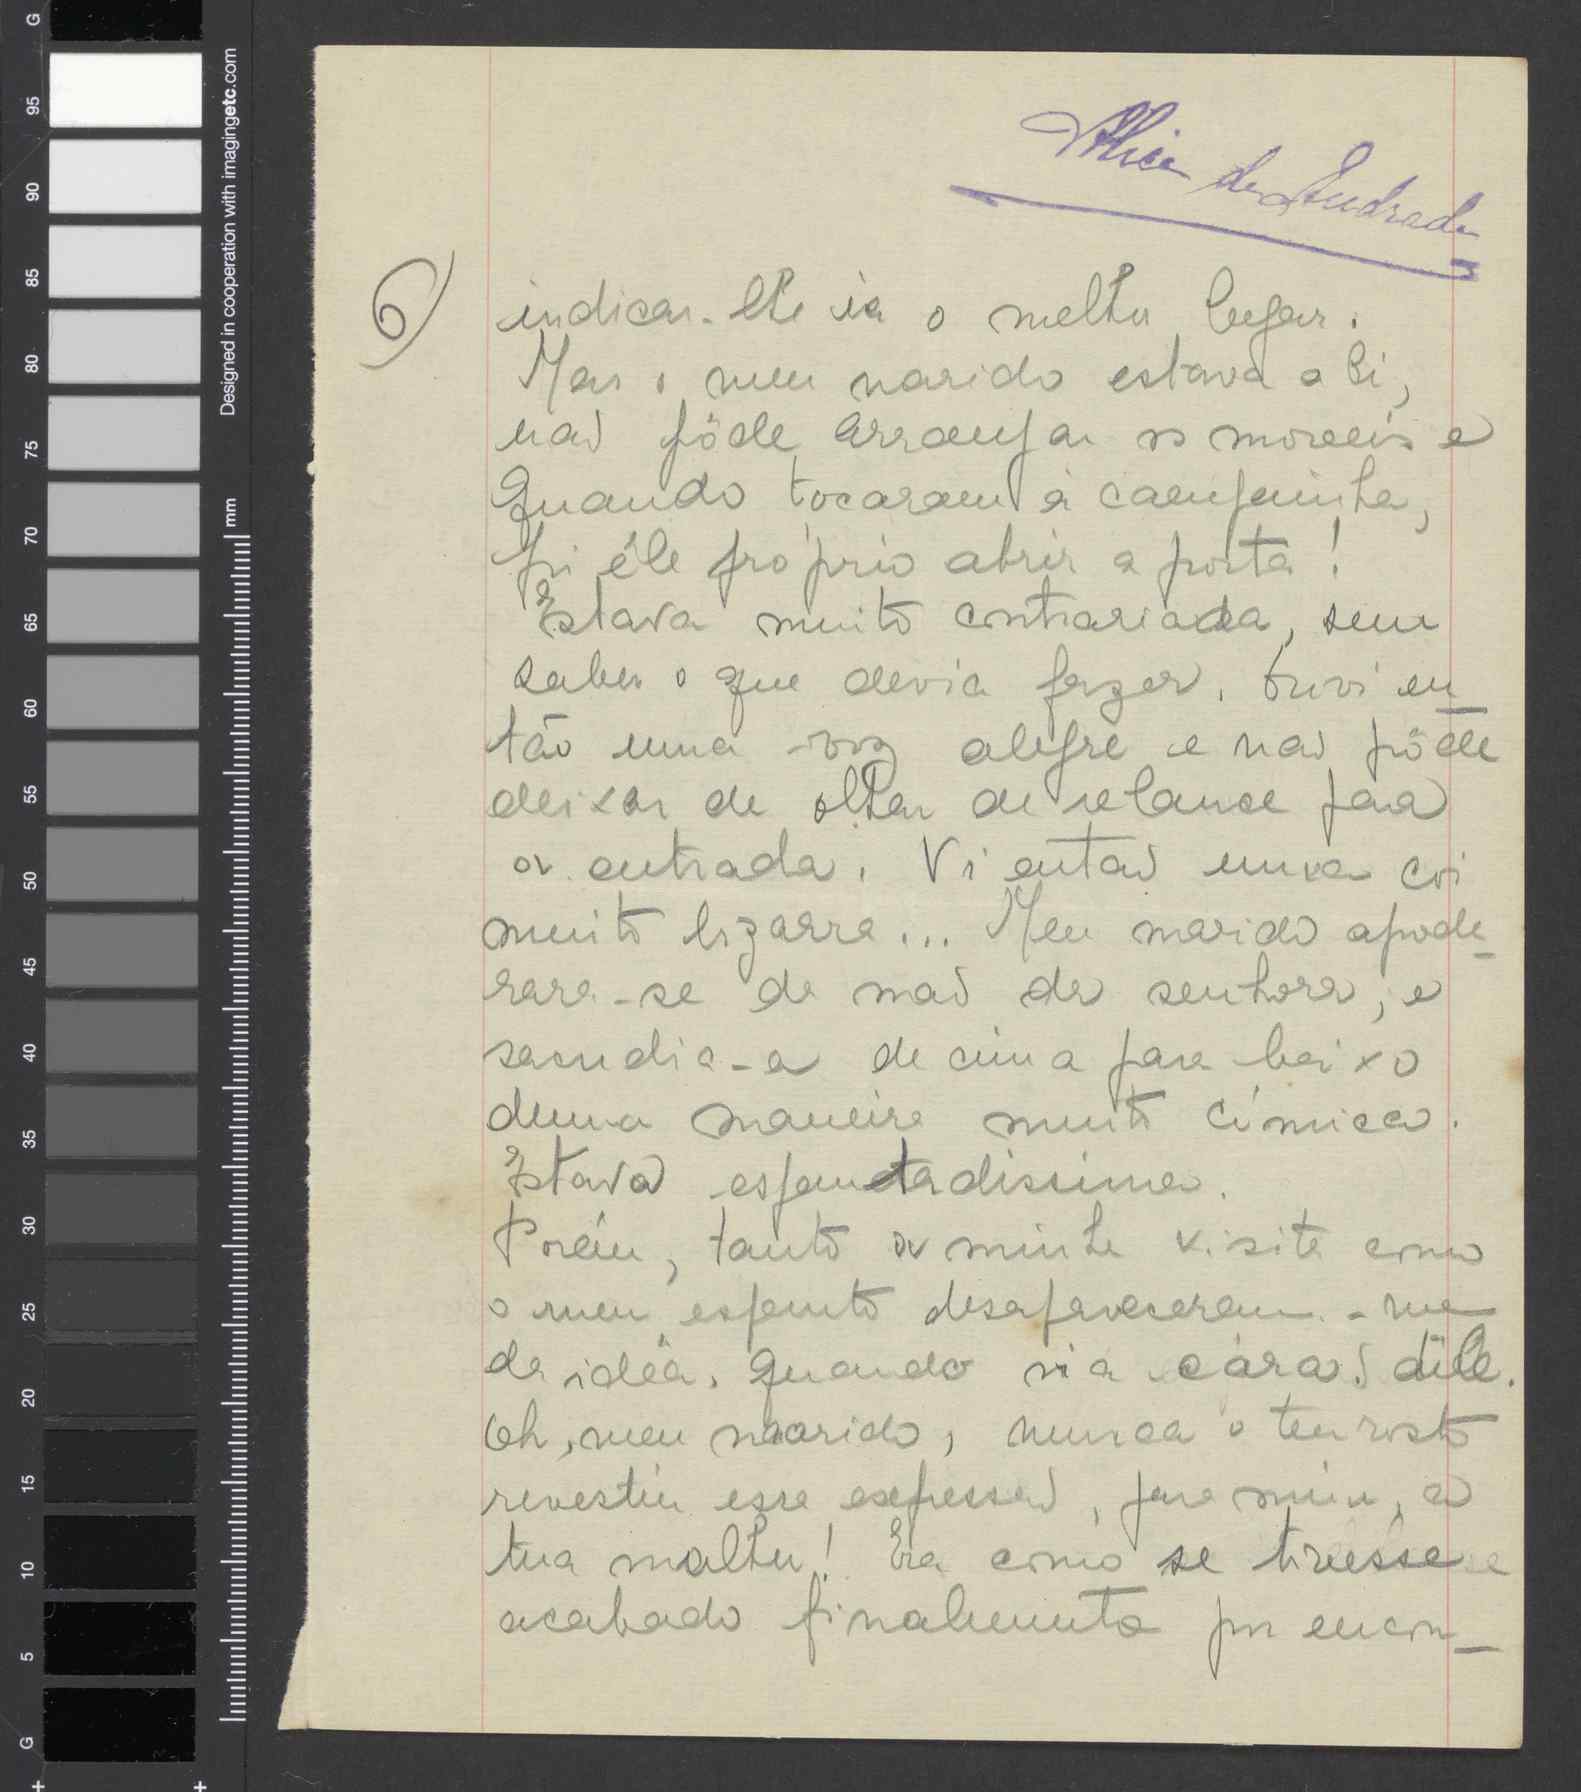 Alice de Andrade
6)
indicar-lhe ia o melhor lugar.
Mas o meu marido estava ali,
não pôde arranjar os moveis e
quando tocaram à campainha,
foi êle próprio abrir a porta!
Estava muito contrariada, sem
saber o que devia fazer. Ouvi en
tão uma voz alegre e não pôde
deixar de olhar de relance para
a entrada. Vi então uma coi
muito bizarra... Meu marido apode-
rara-se da mão da senhora, e
sacudia-a de cima para baixo
duma maneira muito cómica.
Estava espantadissima.
Porém, tanto a minha visita como
o meu espanto desapareceram-me
da idêa, quando vi a cara dêle.
Oh, meu marido, nunca o teu rosto
revestiu essa expressão, para mim, a
tua mulher! Era como se tivesse
acabado finalmente por encon-
G
95
90
85
80
75
70
65
60
55
50
45
40
35
30
25
20
15
10
5
G
Designed in cooperation with imagingetc.com
mm